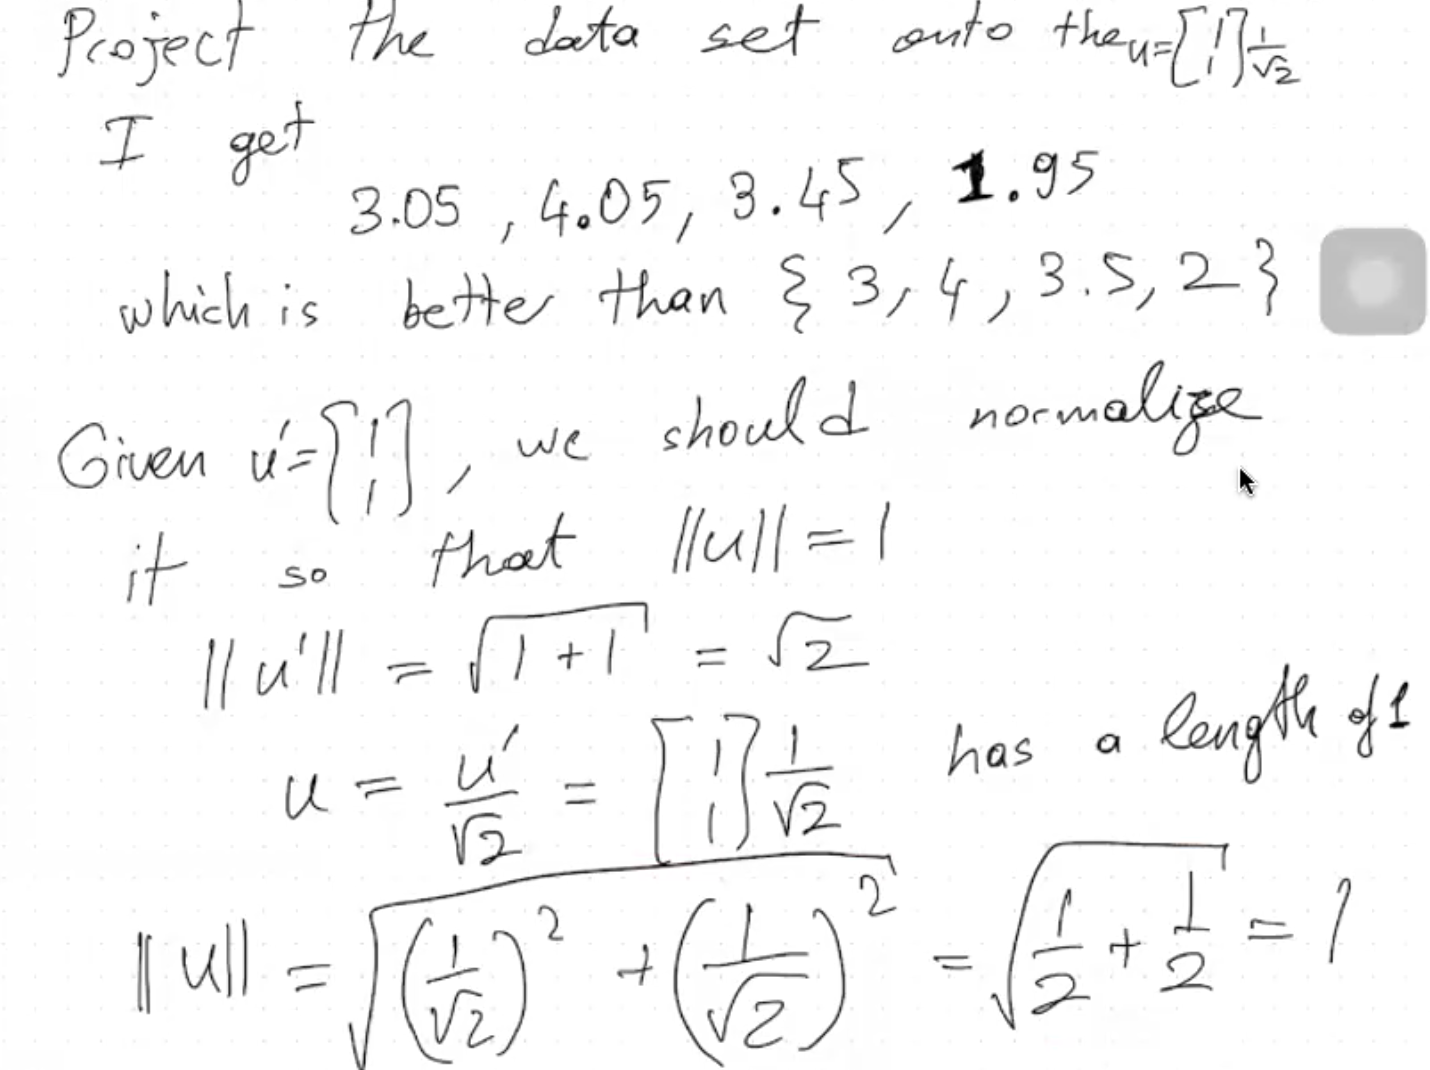 Project the data set onto the u=[1 1] 1/√2
I get
3.05, 4.05, 3.45, 1.95
which is better than {3, 4, 3.5, 2}
Given u'=[1 1], we should normalize
it so that ||u|| = 1
||u'|| = √(1+1) = √2
u = u'/√2 = [1 1] 1/√2 has a length of 1
||u|| = √((1/√2)² + (1/√2)²) = √(1/2 + 1/2) = 1